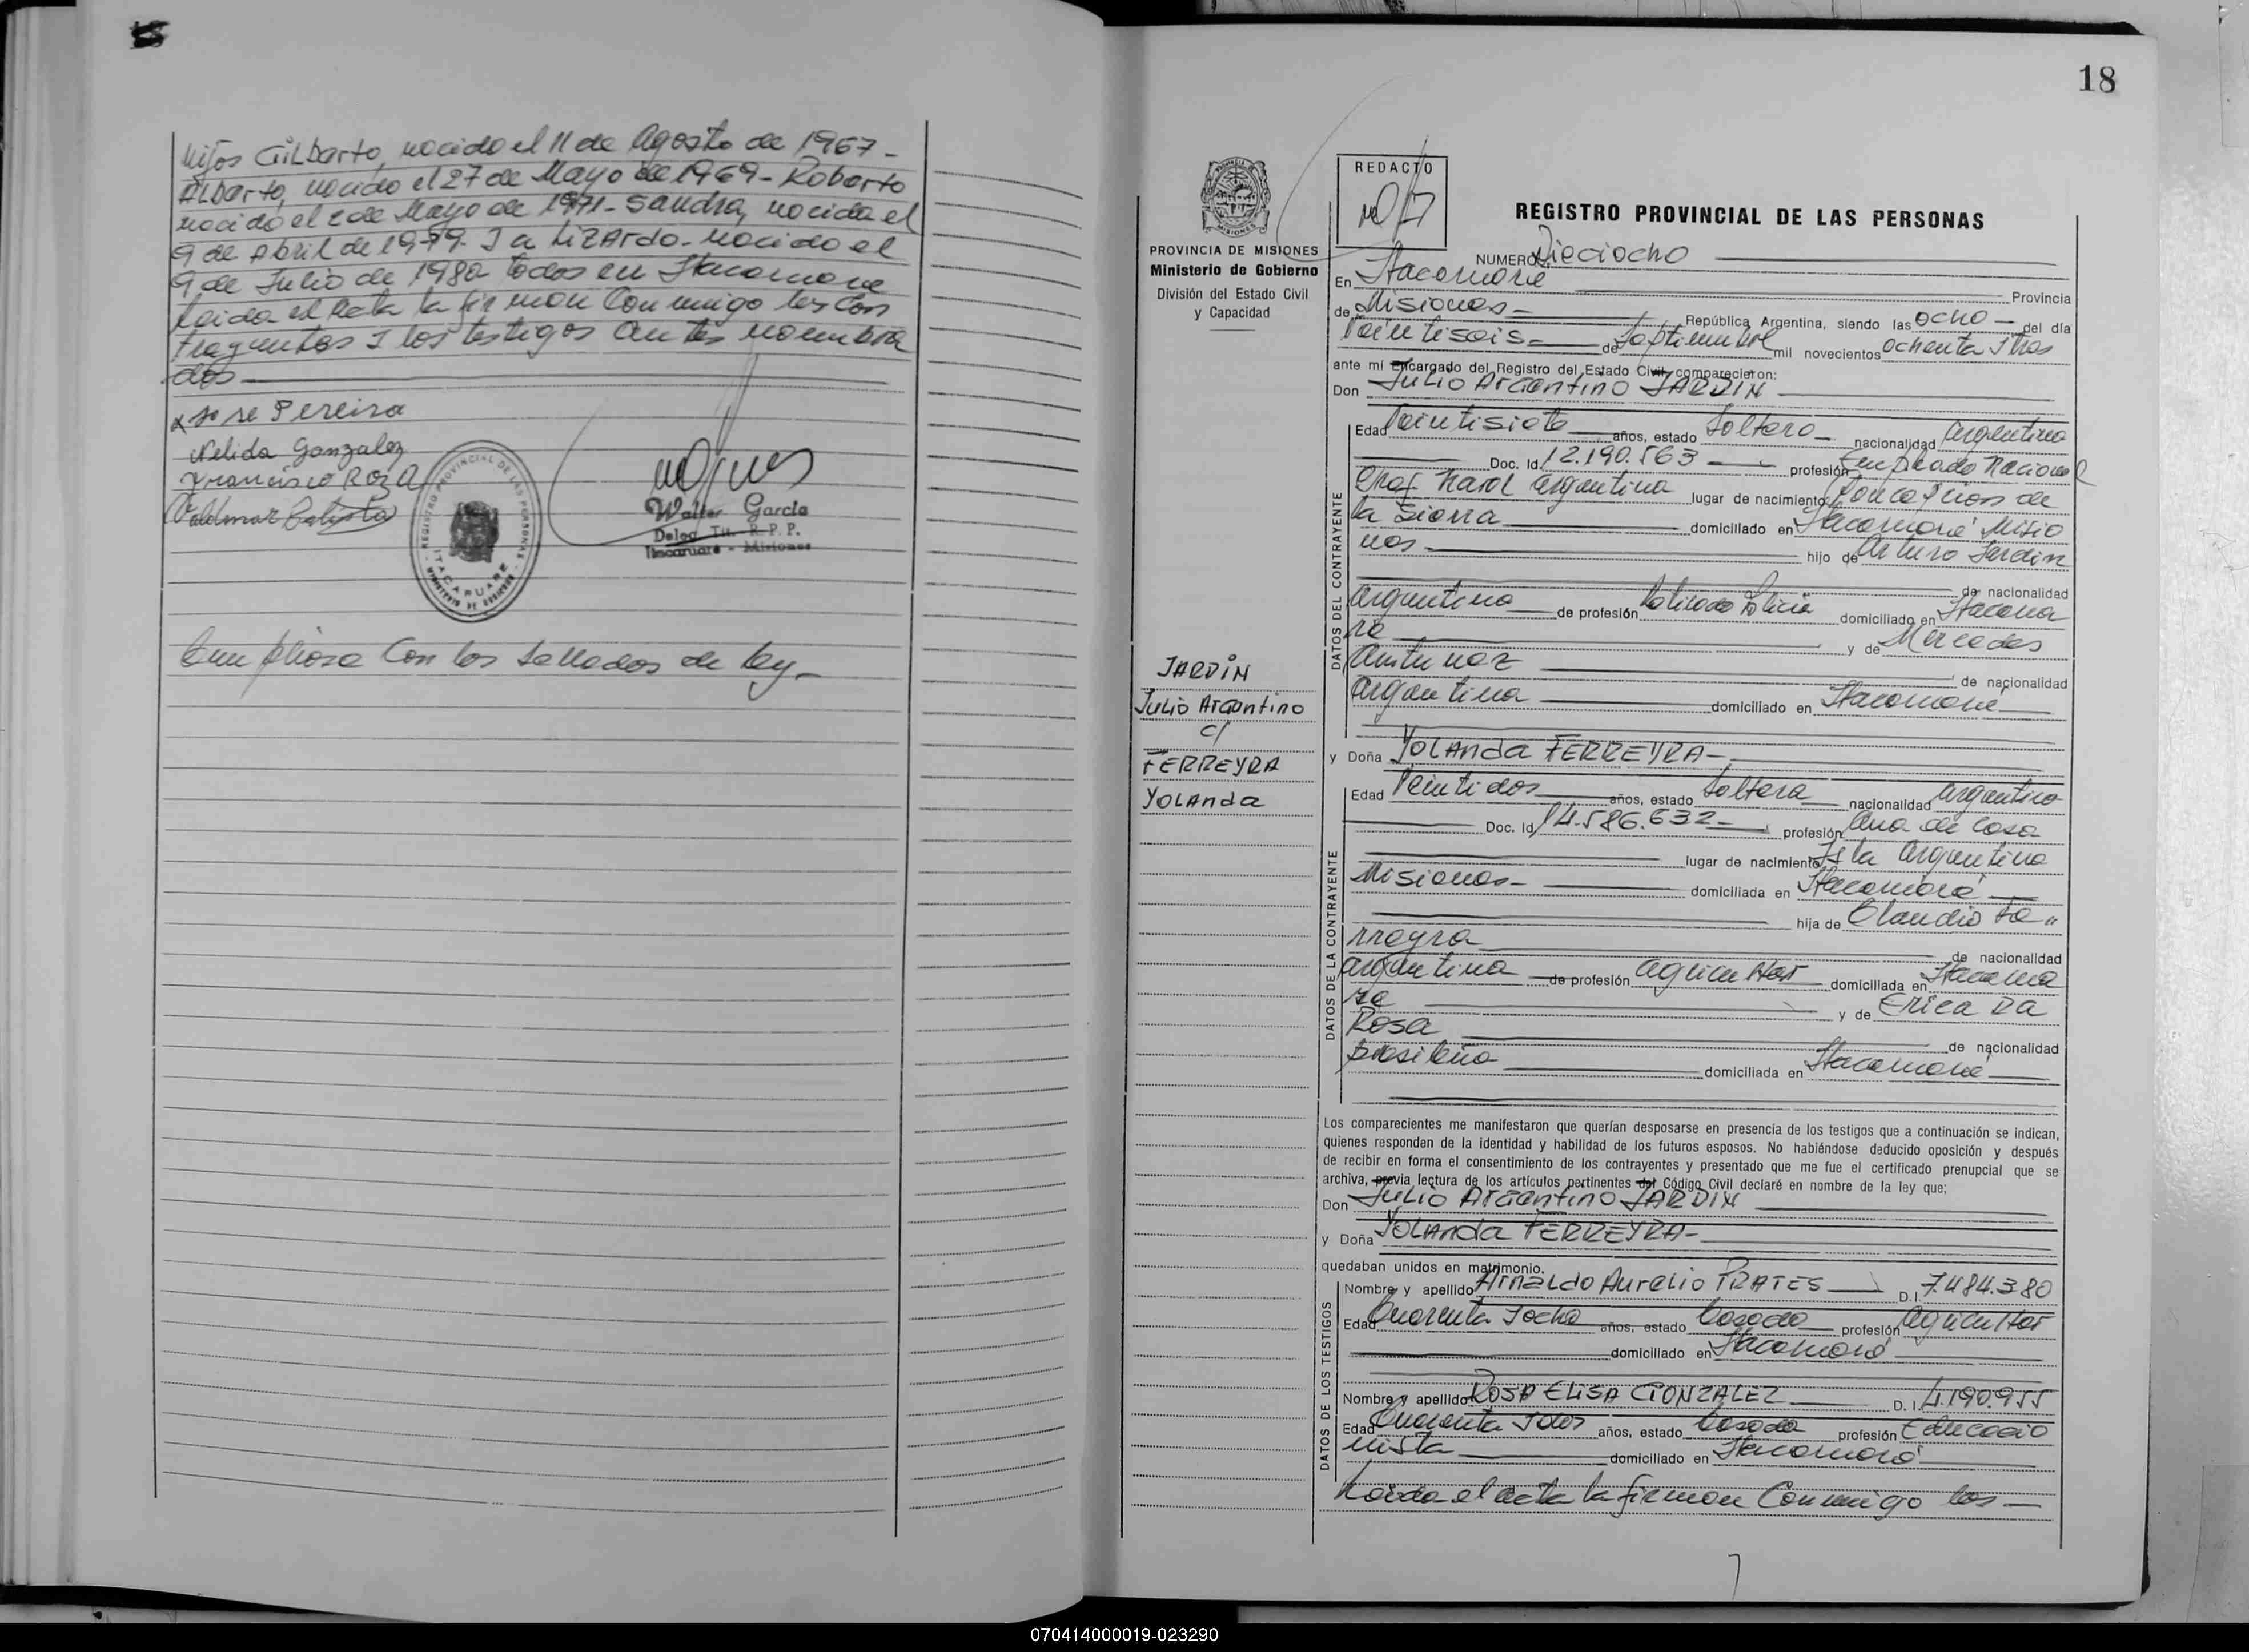 Hijos Gilberto, nacido el 11 de Agosto de 1967 -
Alberto, nacido el 27 de Mayo de 1969 - Roberto
nacido el 2 de Mayo de 1971 - Sandra, nacida el
9 de Abril de 1979. I a LIZArdo - nacido el
9 de Julio de 1980 todos en Itacaruare
leida el Acta la firman Conmigo los Con
trayentes I los testigos antes nombra
dos
x Jose Pereira
Nelida Gonzalez
Francisco Roza
Valdmar Batista
REGISTRO PROVINCIAL DE LAS PERSONAS
ITACARUARE
Walter Garcia
Deleg. Tit. R.P.P.
Itacaruaré - Misiones
con los sellados de ley -
18
PROVINCIA DE MISIONES
Ministerio de Gobierno
División del Estado Civil
y Capacidad
JARDIN
Julio Argentino
c/
FERREYRA
YOLAnda
REDACTO
REGISTRO PROVINCIAL DE LAS PERSONAS
NUMERO Dieciocho
En Itacaruare Provincia
de Misiones - República Argentina, siendo las ocho - del día
Veintiseis - de Septiembre mil novecientos ochenta I tres
ante mí Encargado del Registro del Estado Civil, comparecieron:
Don Julio Argentino JARDIN
DATOS DEL CONTRAYENTE
Edad Veintisiete años, estado Soltero - nacionalidad Argentina
Doc. Id. 12.190.563 - profesión Empleado Nacional
Argentina lugar de nacimiento Concepcion de
la Sierra domiciliado en Itacaruaré Misio
nes - hijo de Arturo Jardin
de nacionalidad
Argentina de profesión Retirado Policia domiciliado en Itacarua
re y de Mercedes
de nacionalidad
Argentina domiciliado en Itacaruaré
y Doña YOLAnda FERREYRA -
DATOS DE LA CONTRAYENTE
Edad Veintidos años, estado Soltera nacionalidad Argentina
Doc. Id. 14.586.632 - profesión Ama de Casa
lugar de nacimiento Isla Argentina
Misiones - domiciliada en Itacaruaré
hija de Claudio Fe
rreyra de nacionalidad
Argentina de profesión Agricultor domiciliada en Itacarua
re y de Erica Da
Rosa de nacionalidad
Brasileña domiciliada en Itacaruaré
Los comparecientes me manifestaron que querían desposarse en presencia de los testigos que a continuación se indican,
quienes responden de la identidad y habilidad de los futuros esposos. No habiéndose deducido oposición y después
de recibir en forma el consentimiento de los contrayentes y presentado que me fue el certificado prenupcial que se
archiva, previa lectura de los artículos pertinentes del Código Civil declaré en nombre de la ley que;
Don Julio Argentino JARDIN
y Doña YOLAnda FERREYRA -
quedaban unidos en matrimonio.
DATOS DE LOS TESTIGOS
Nombre y apellido Arnaldo Aurelio PRATES D.I. 7.484.380
Edad Cuarenta I ocho años, estado Casado profesión Agricultor
domiciliado en Itacaruaré
Nombre y apellido ROSA ELISA GONZALEZ D.I. 4.190.955
Edad Cuarenta I dos años, estado Casada profesión Educacio
nista domiciliado en Itacaruaré
Leida el acta la firman Conmigo los -
070414000019-023290